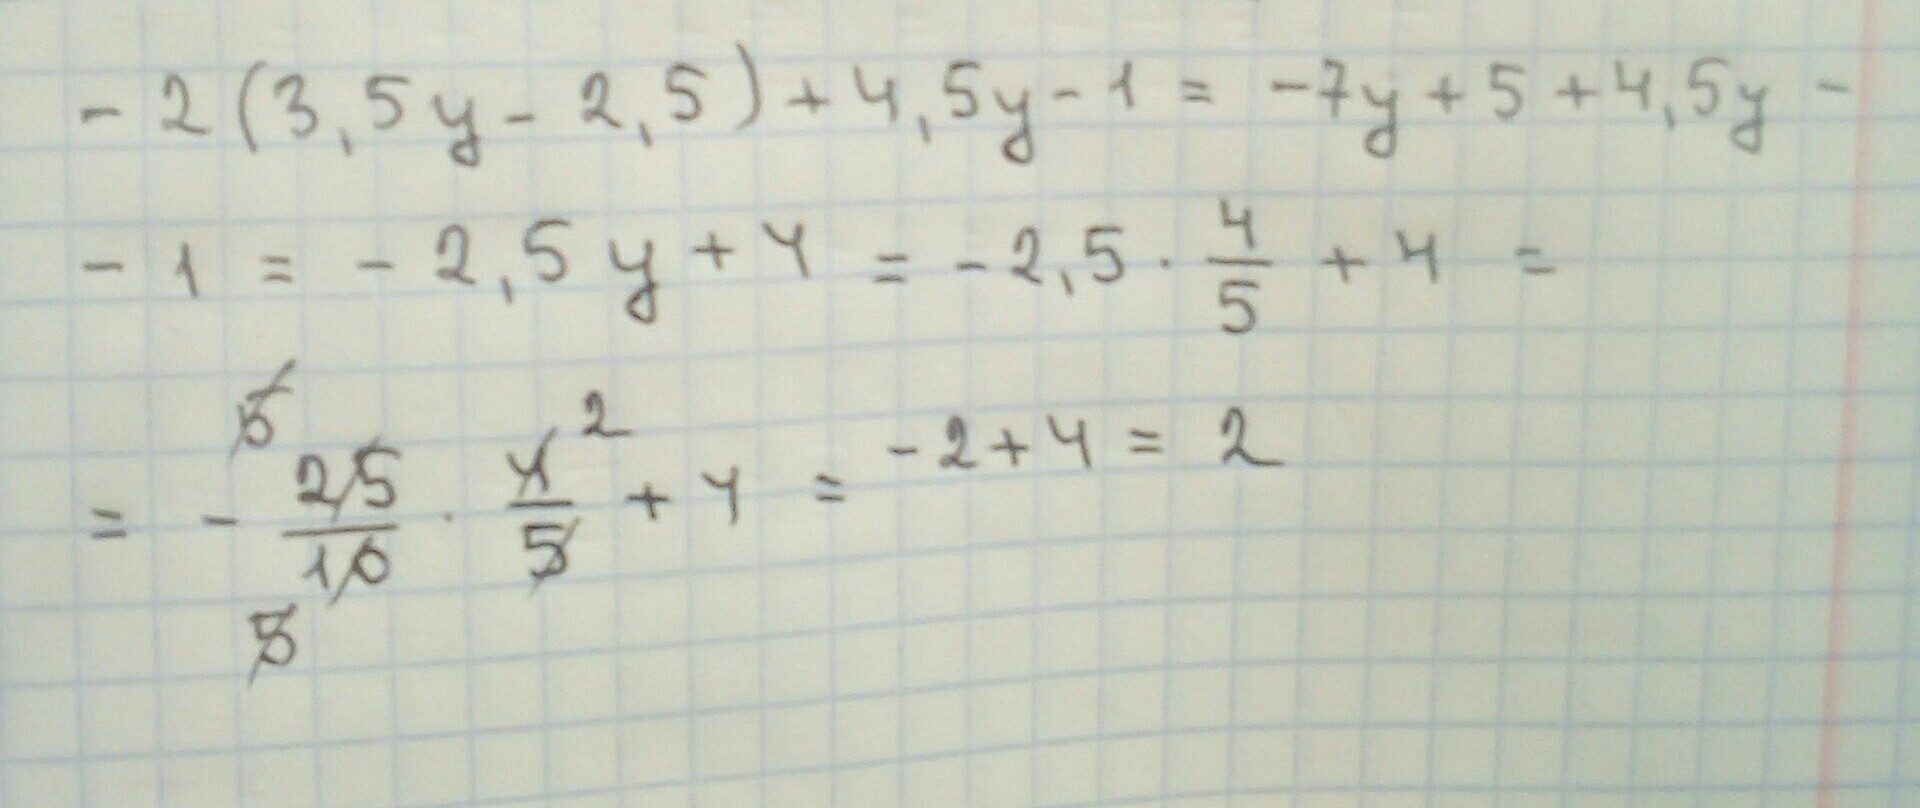 - 2 (3,5y - 2,5) + 4,5y - 1 = -7y + 5 + 4,5y -
- 1 = - 2,5 y + 4 = - 2,5 · 4/5 + 4 =
= - 25/10 · 4/5 + 4 = -2 + 4 = 2
5 2
5